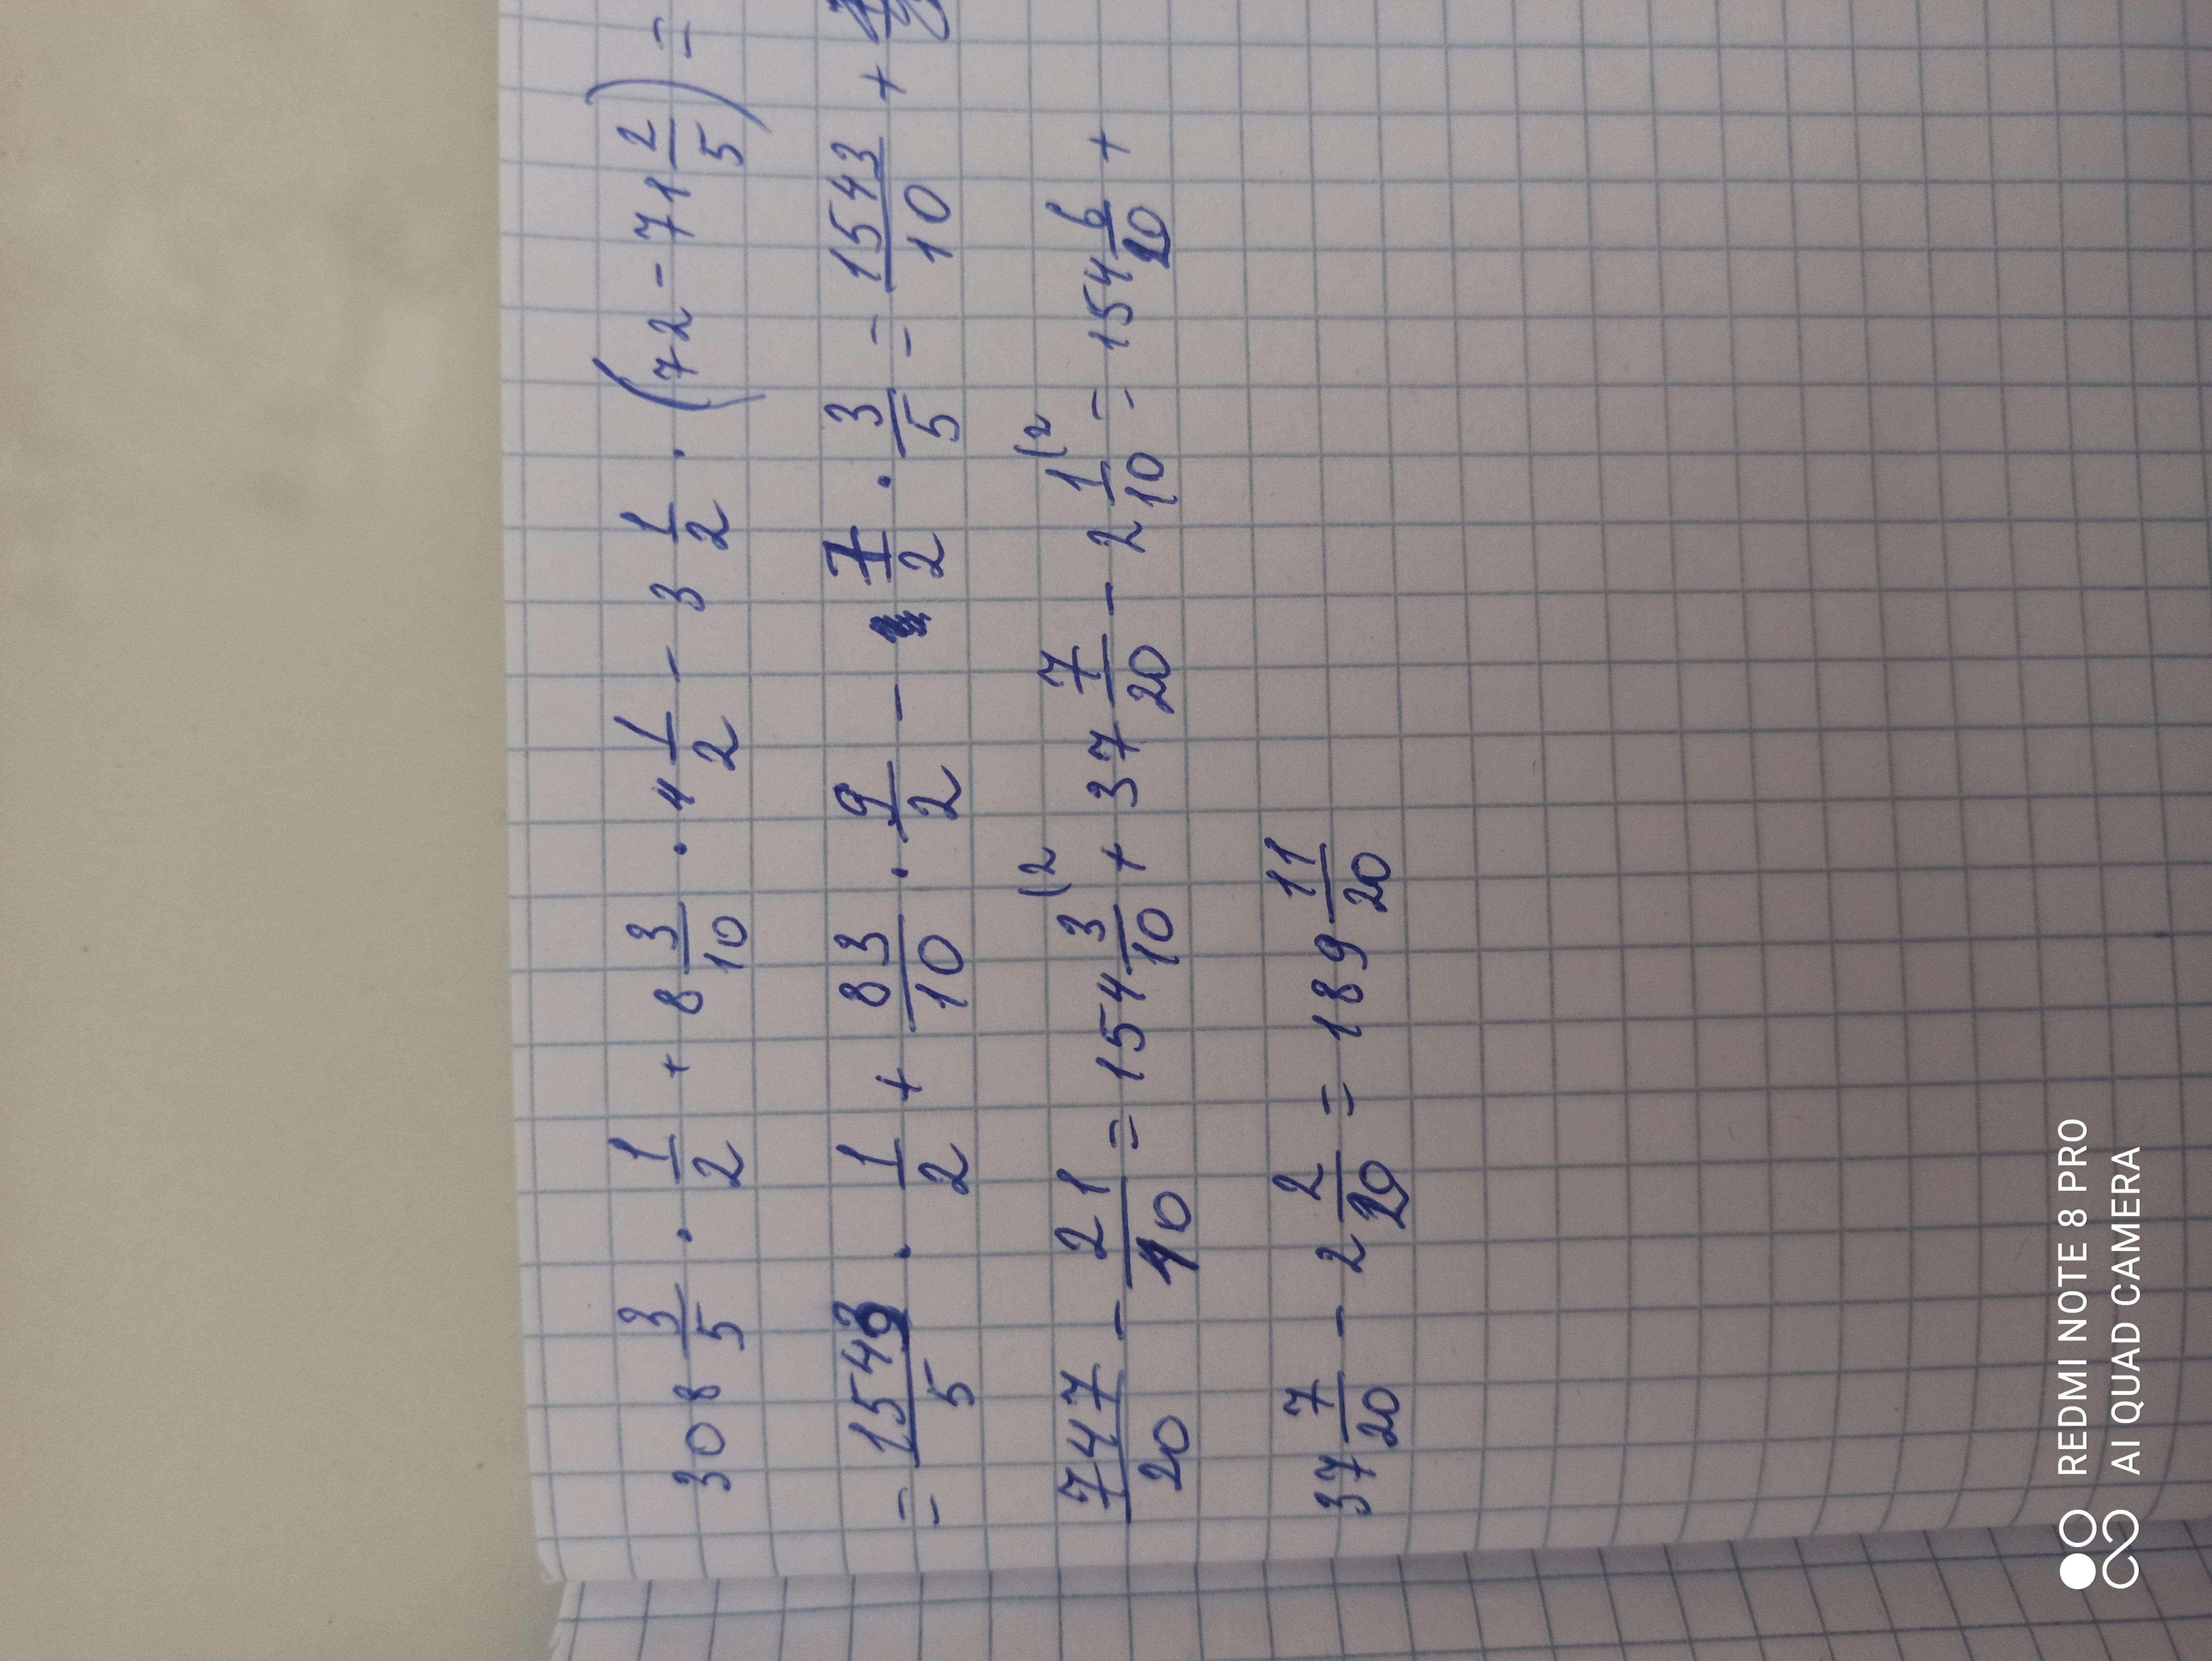 308 3/5 · 1/2 + 8 3/10 · 4 1/2 - 3 1/2 · (72 - 71 2/5) =
= 1543/5 · 1/2 + 83/10 · 9/2 - 7/2 · 3/5 = 1543/10 +
747/20 - 21/10 = 154 3/10 (2 + 37 7/20 - 2 1/10 (2 = 154 6/20 +
37 7/20 - 2 2/20 = 189 11/20
REDMI NOTE 8 PRO
AI QUAD CAMERA